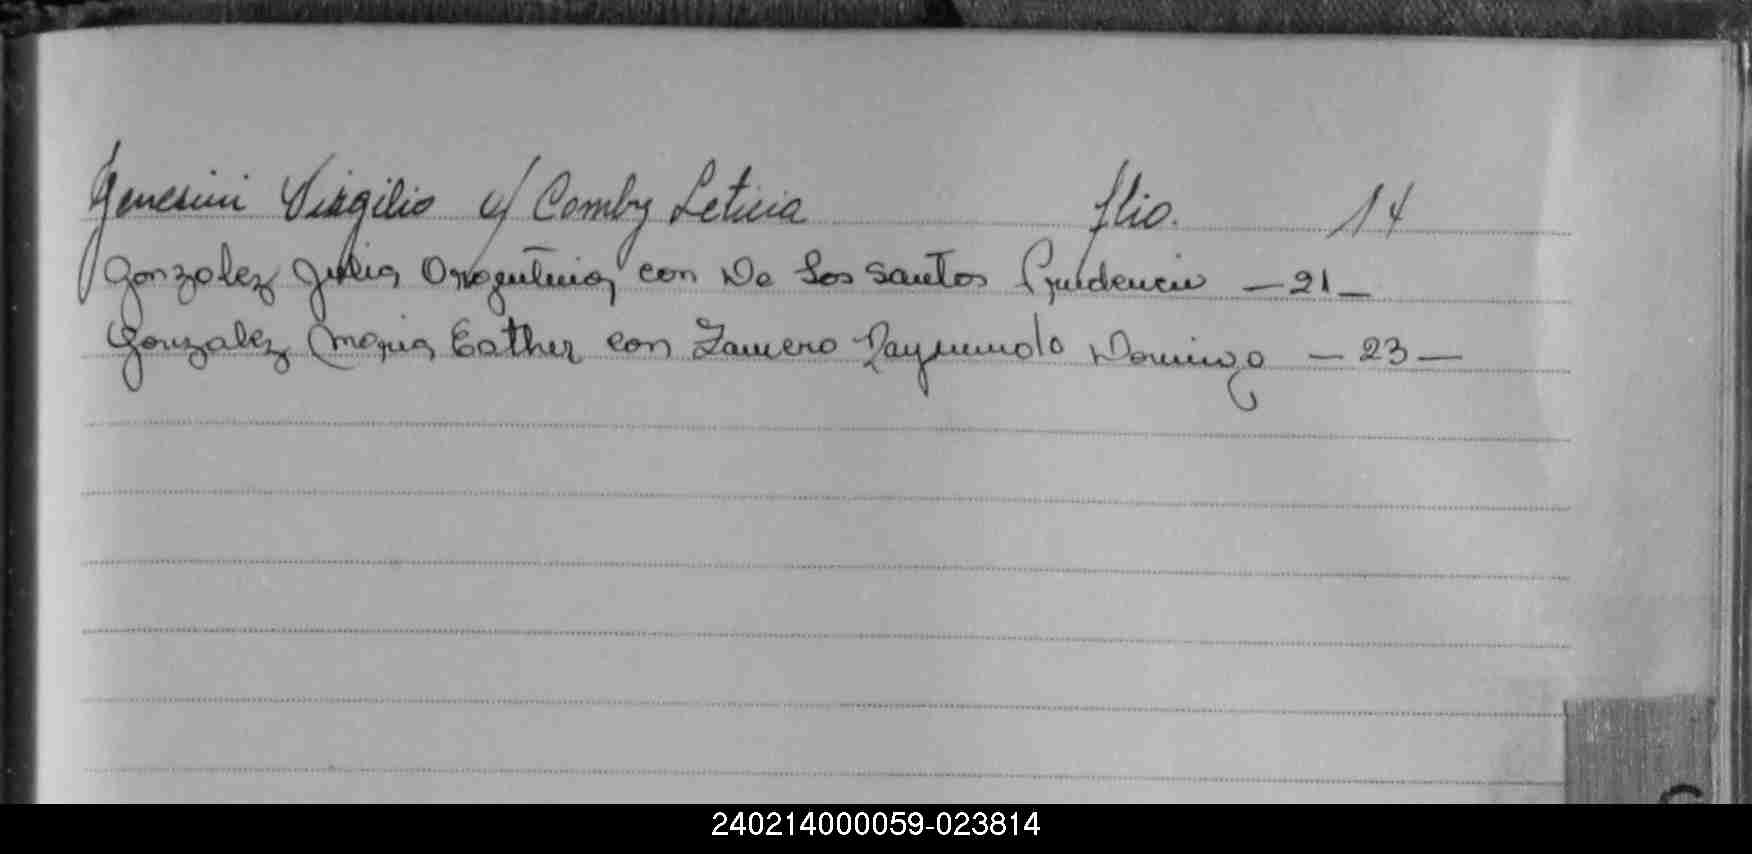 Genesini Virgilio c/ Comby Leticia flio. 14
Gonzalez Julia con De Los Santos Prudencio — 21 —
Gonzalez Maria Esther con Zamero Raymundo Domingo — 23 —
G
240214000059-023814